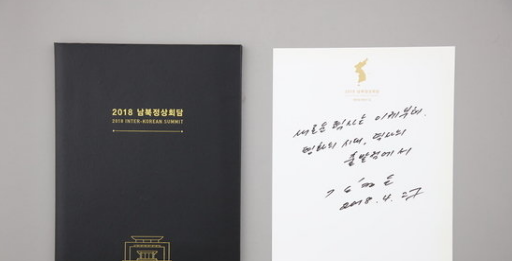 2018 남북정상회담
2018 INTER-KOREAN SUMMIT
2018 남북정상회담
새로운 력사는 이제부터.
평화의 시대, 력사의
출발점에서
김정은
2018. 4. 27